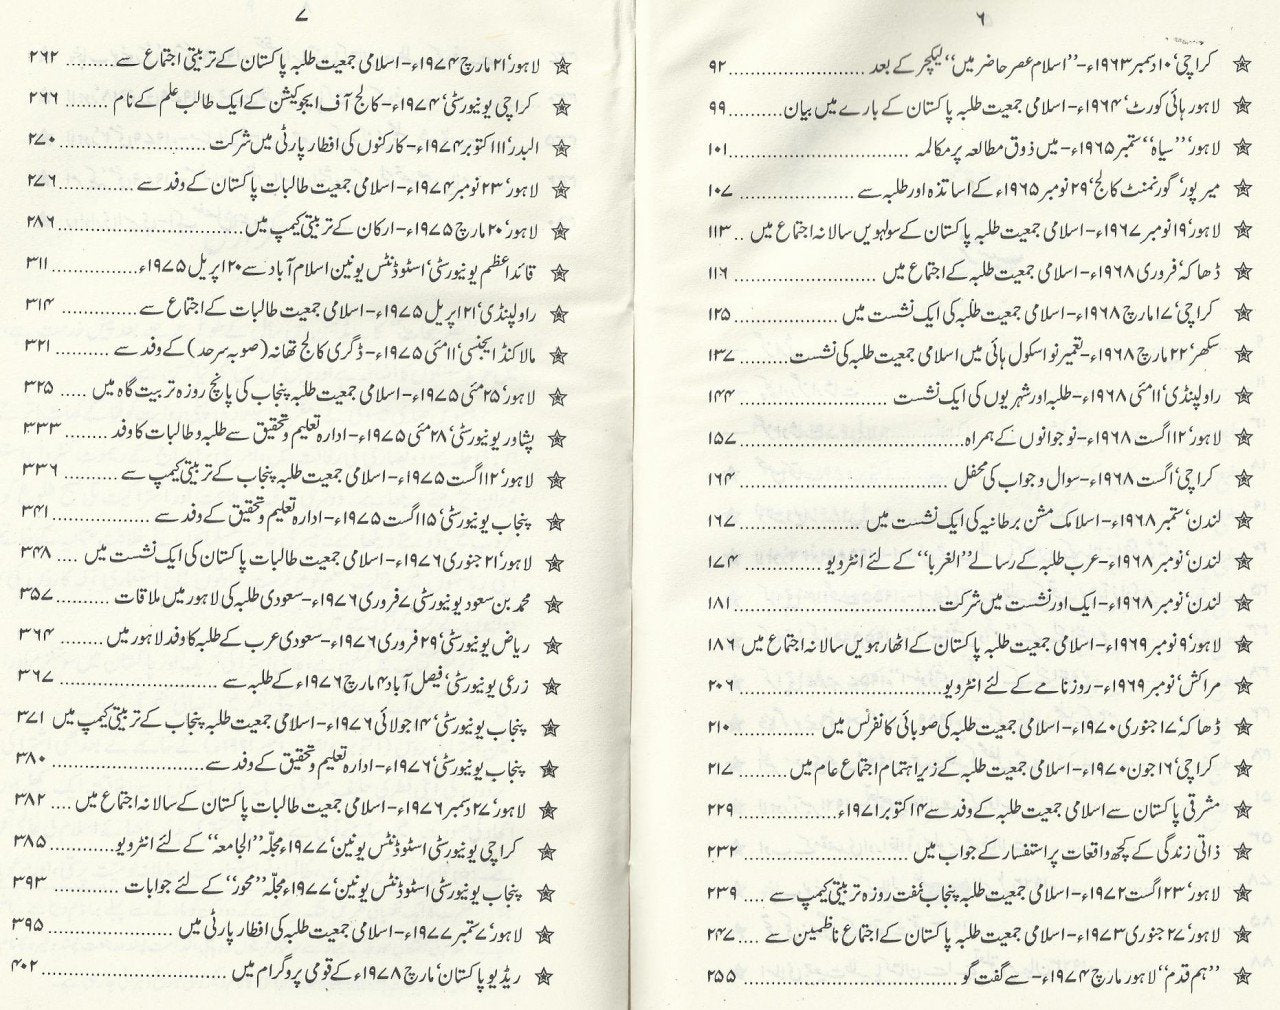 ۶
☆ کراچی‘ ۱۰ دسمبر ۱۹۶۳ء-’’اسلام عصر حاضر میں‘‘ لیکچر کے بعد ........ ۹۲
☆ لاہور ہائی کورٹ‘ ۱۹۶۴ء-اسلامی جمعیت طلبہ پاکستان کے بارے میں بیان ........ ۹۹
☆ لاہور‘ ’’سیاہ‘‘ ستمبر ۱۹۶۵ء-میں ذوق مطالعہ پر مکالمہ ........ ۱۰۱
☆ میرپور‘ گورنمنٹ کالج‘ ۲۹ نومبر ۱۹۶۵ء کے اساتذہ اور طلبہ سے ........ ۱۰۷
☆ لاہور‘ ۱۹ نومبر ۱۹۶۷ء-اسلامی جمعیت طلبہ پاکستان کے سولہویں سالانہ اجتماع میں .. ۱۱۳
☆ ڈھاکہ‘ فروری ۱۹۶۸ء-اسلامی جمعیت طلبہ کے اجتماع میں ........ ۱۱۶
☆ کراچی‘ ۱۷ مارچ ۱۹۶۸ء-اسلامی جمعیت طلبہ کی ایک نشست میں ........ ۱۲۵
☆ سکھر‘ ۲۲ مارچ ۱۹۶۸ء-تعمیر نو اسکول ہائی میں اسلامی جمعیت طلبہ کی نشست ........ ۱۳۷
☆ راولپنڈی‘ ۱۱ مئی ۱۹۶۸ء-طلبہ اور شہریوں کی ایک نشست ........ ۱۴۴
☆ لاہور‘ ۱۲ اگست ۱۹۶۸ء-نوجوانوں کے ہمراہ ........ ۱۵۷
☆ کراچی‘ اگست ۱۹۶۸ء-سوال و جواب کی محفل ........ ۱۶۴
☆ لندن‘ ستمبر ۱۹۶۸ء-اسلامک مشن برطانیہ کی ایک نشست میں ........ ۱۶۷
☆ لندن‘ نومبر ۱۹۶۸ء-عرب طلبہ کے رسالے ’’الغربا‘‘ کے لئے انٹرویو ........ ۱۷۴
☆ لندن‘ نومبر ۱۹۶۸ء-ایک اور نشست میں شرکت ........ ۱۸۱
☆ لاہور‘ ۹ نومبر ۱۹۶۹ء-اسلامی جمعیت طلبہ پاکستان کے اٹھارہویں سالانہ اجتماع میں ۱۸۶
☆ مراکش‘ نومبر ۱۹۶۹ء-روزنامے کے لئے انٹرویو ........ ۲۰۶
☆ ڈھاکہ‘ ۱۷ جنوری ۱۹۷۰ء-اسلامی جمعیت طلبہ کی صوبائی کانفرنس میں ........ ۲۱۰
☆ کراچی‘ ۱۶ جون ۱۹۷۰ء-اسلامی جمعیت طلبہ کے زیر اہتمام اجتماع عام میں ........ ۲۱۷
☆ مشرقی پاکستان سے اسلامی جمعیت طلبہ کے وفد سے ۱۴ اکتوبر ۱۹۷۱ء ........ ۲۲۹
☆ ذاتی زندگی کے کچھ واقعات پر استفسار کے جواب میں ........ ۲۳۴
☆ لاہور‘ ۲۳ اگست ۱۹۷۲ء-اسلامی جمعیت طلبہ پنجاب‘ ہفت روزہ تربیتی کیمپ سے .... ۲۳۹
☆ لاہور‘ ۲۷ جنوری ۱۹۷۳ء-اسلامی جمعیت طلبہ پاکستان کے اجتماع ناظمین سے .... ۲۴۷
☆ ’’ہم قدم‘‘ لاہور مارچ ۱۹۷۴ء-سے گفت گو ........ ۲۵۵
۷
☆ لاہور‘ ۲۱ مارچ ۱۹۷۴ء-اسلامی جمعیت طلبہ پاکستان کے تربیتی اجتماع سے ........ ۲۶۲
☆ کراچی یونیورسٹی‘ ۱۹۷۴ء-کالج آف ایجوکیشن کے ایک طالب علم کے نام ........ ۲۶۶
☆ البدر‘ ۱۱ اکتوبر ۱۹۷۴ء-کارکنوں کی افطار پارٹی میں شرکت ........ ۲۷۰
☆ لاہور‘ ۲۳ نومبر ۱۹۷۴ء-اسلامی جمعیت طالبات پاکستان کے وفد سے ........ ۲۷۶
☆ لاہور‘ ۲۰ مارچ ۱۹۷۵ء-ارکان کے تربیتی کیمپ میں ........ ۲۸۶
☆ قائداعظم یونیورسٹی‘ اسٹوڈنٹس یونین اسلام آباد سے ۲۰ اپریل ۱۹۷۵ء ........ ۳۱۱
☆ راولپنڈی‘ ۲۱ اپریل ۱۹۷۵ء-اسلامی جمعیت طالبات کے اجتماع سے ........ ۳۱۴
☆ مالاکنڈ ایجنسی‘ ۱۱ مئی ۱۹۷۵ء-ڈگری کالج تھانہ (صوبہ سرحد) کے وفد سے ........ ۳۲۱
☆ لاہور‘ ۲۵ مئی ۱۹۷۵ء-اسلامی جمعیت طلبہ پنجاب کی پانچ روزہ تربیت گاہ میں ..... ۳۲۵
☆ پشاور یونیورسٹی‘ ۲۸ مئی ۱۹۷۵ء-ادارہ تعلیم و تحقیق سے طلبہ و طالبات کا وفد ........ ۳۳۳
☆ لاہور‘ ۱۲ اگست ۱۹۷۵ء-اسلامی جمعیت طلبہ پنجاب کے تربیتی کیمپ سے ........ ۳۳۶
☆ پنجاب یونیورسٹی‘ ۱۵ اگست ۱۹۷۵ء-ادارہ تعلیم و تحقیق کے وفد سے ........ ۳۴۱
☆ لاہور‘ ۲۱ جنوری ۱۹۷۶ء-اسلامی جمعیت طالبات پاکستان کی ایک نشست میں .... ۳۴۸
☆ محمد بن سعود یونیورسٹی ۷ فروری ۱۹۷۶ء-سعودی طلبہ کی لاہور میں ملاقات ........ ۳۵۷
☆ ریاض یونیورسٹی‘ ۲۹ فروری ۱۹۷۶ء-سعودی عرب کے طلبہ کا وفد لاہور میں ........ ۳۶۴
☆ زرعی یونیورسٹی‘ فیصل آباد ۴ مارچ ۱۹۷۶ء کے طلبہ سے ........ ۳۶۷
☆ پنجاب یونیورسٹی‘ ۱۴ جولائی ۱۹۷۶ء-اسلامی جمعیت طلبہ پنجاب کے تربیتی کیمپ میں ۳۷۱
☆ پنجاب یونیورسٹی‘ ۱۹۷۶ء-ادارہ تعلیم و تحقیق کے وفد سے ........ ۳۸۰
☆ لاہور‘ ۲۷ دسمبر ۱۹۷۶ء-اسلامی جمعیت طالبات پاکستان کے سالانہ اجتماع میں .... ۳۸۲
☆ کراچی یونیورسٹی اسٹوڈنٹس یونین‘ ۱۹۷۷ء مجلّہ ’’الجامعہ‘‘ کے لئے انٹرویو ........ ۳۸۵
☆ پنجاب یونیورسٹی اسٹوڈنٹس یونین‘ ۱۹۷۷ء مجلّہ ’’محور‘‘ کے لئے جوابات ........ ۳۹۳
☆ لاہور‘ ۷ ستمبر ۱۹۷۷ء-اسلامی جمعیت طلبہ کی افطار پارٹی میں ........ ۳۹۵
☆ ریڈیو پاکستان‘ مارچ ۱۹۷۸ء کے قومی پروگرام میں ........ ۴۰۲